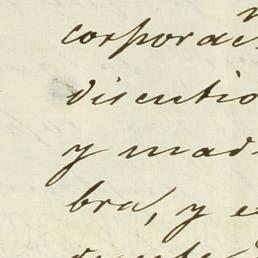 corporac
discutio
y mad
bra, y e